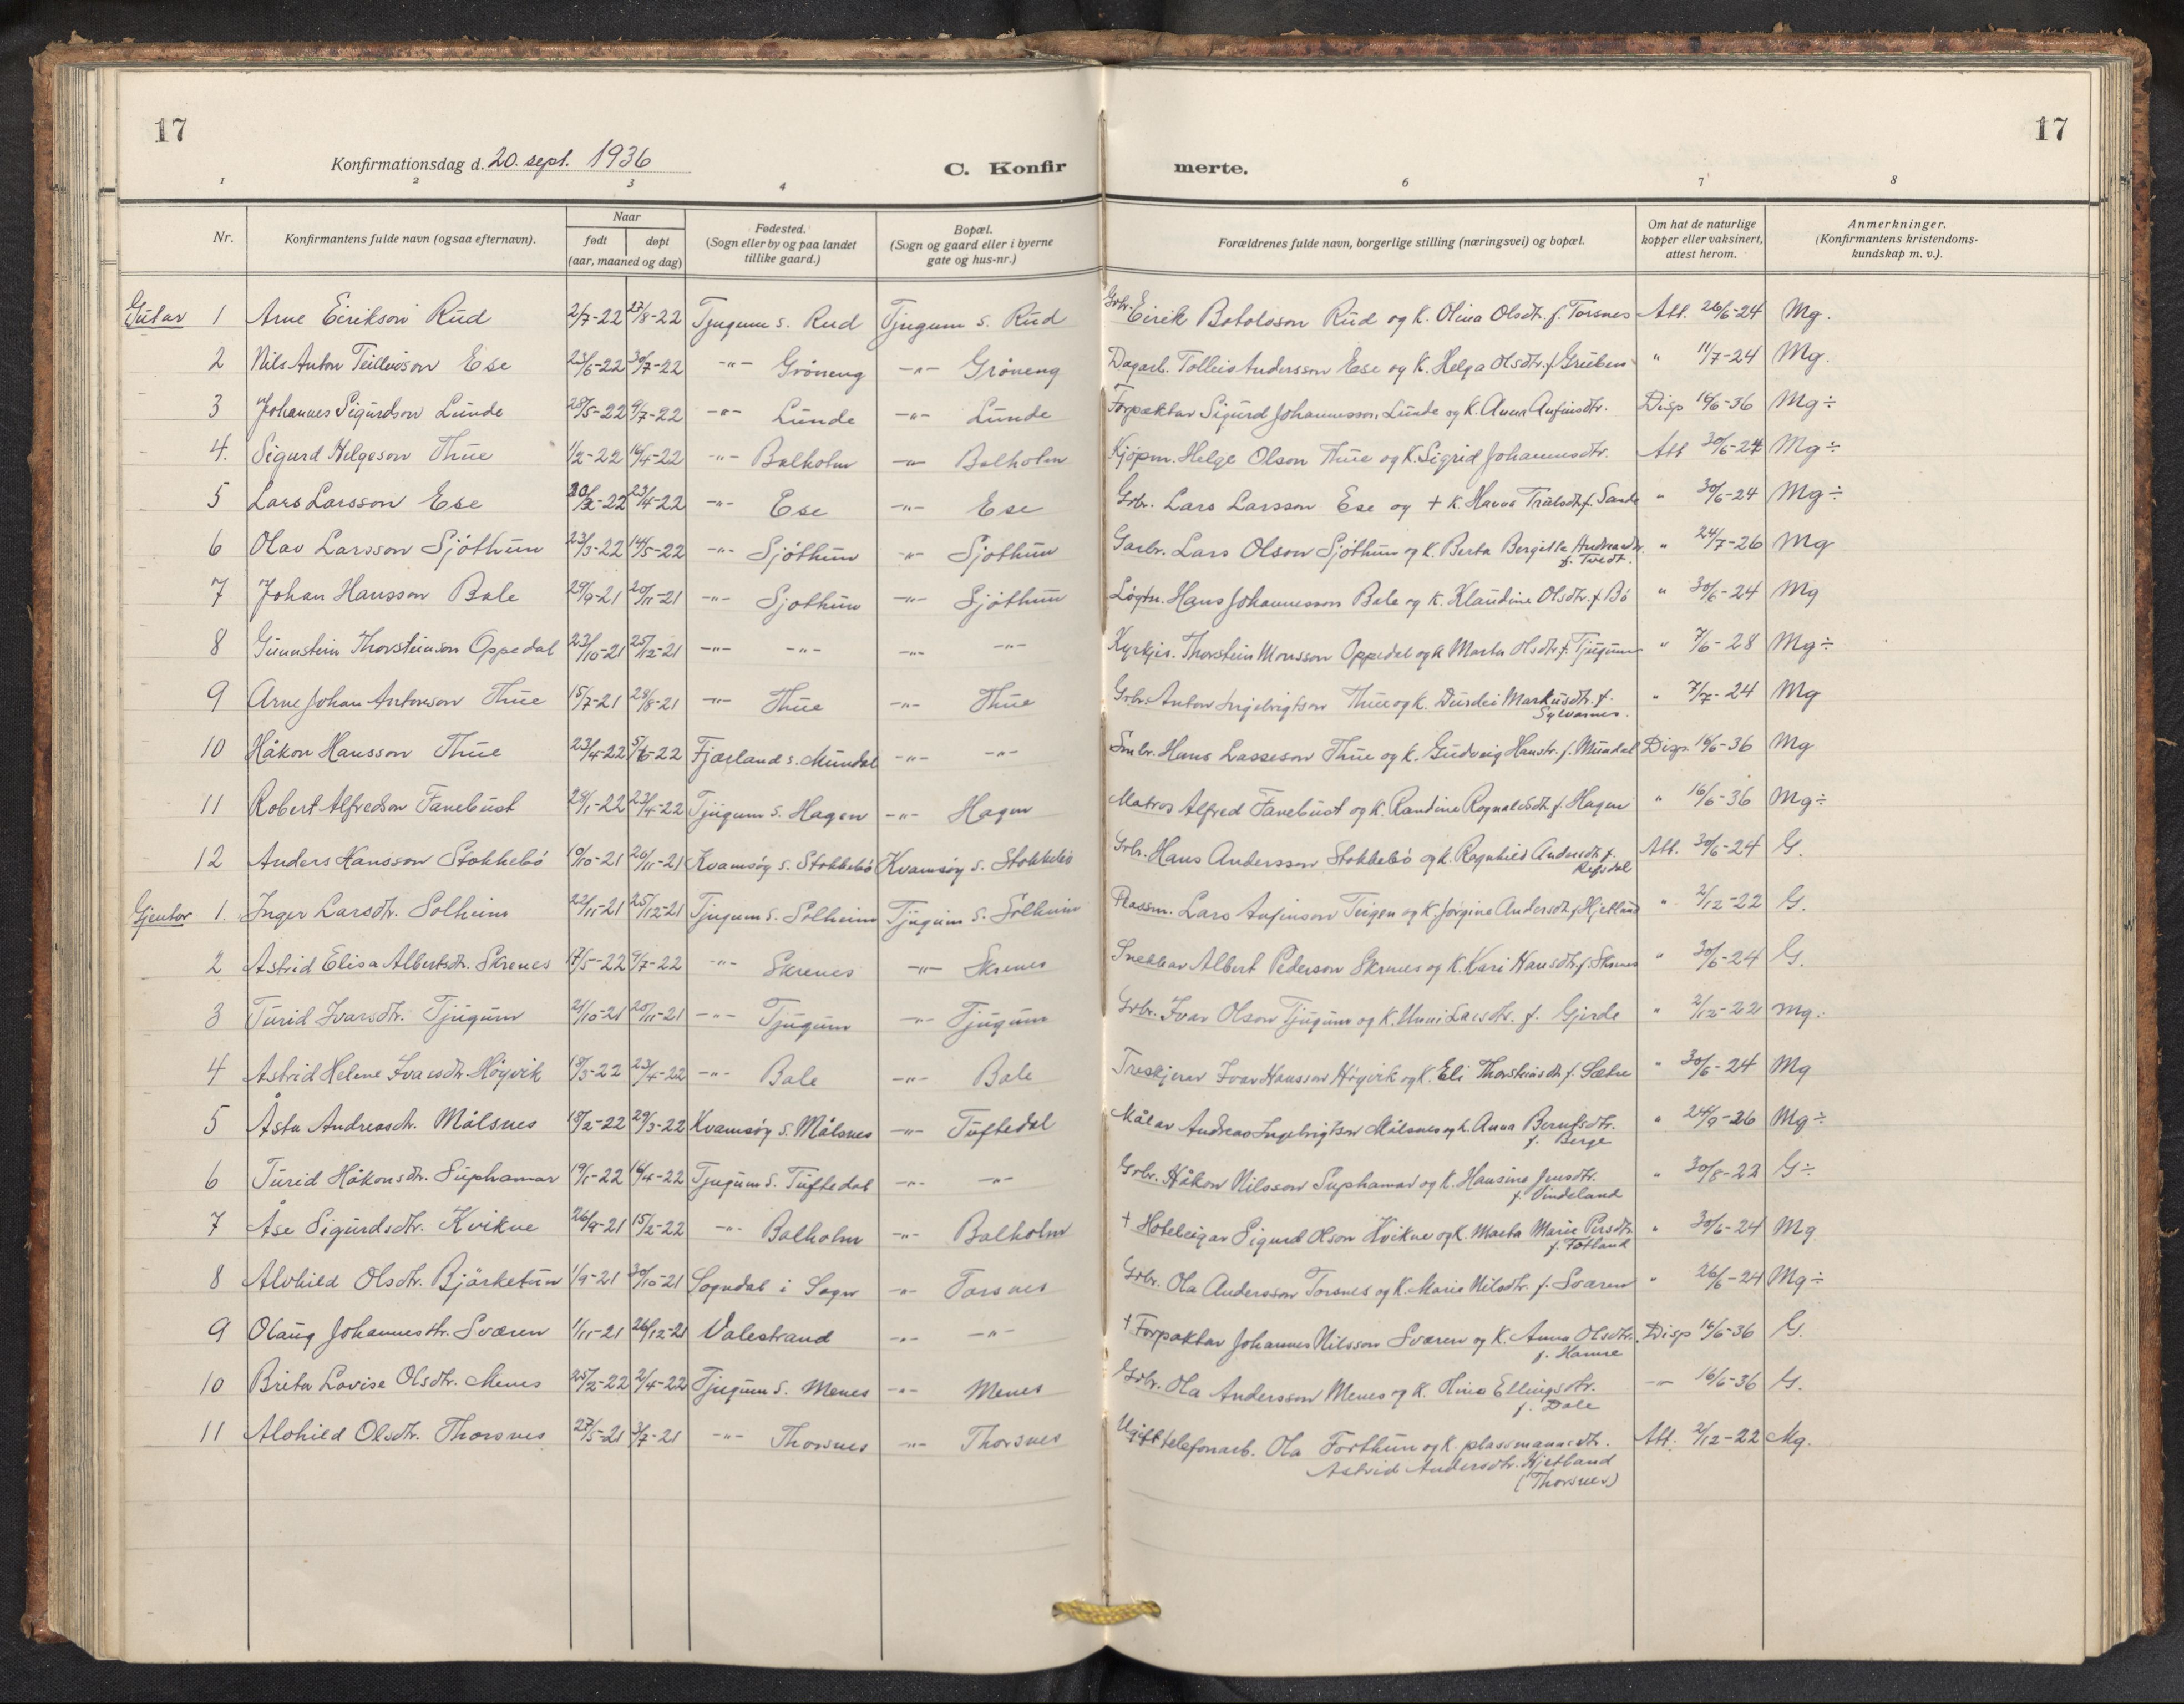 17
17
Konfirmationsdag d. 20. sept. 1936
C. Konfirmerte.
1 2 3 4 6 7 8
Nr. Konfirmantens fulde navn (ogsaa efternavn). Naar født døpt (aar, maaned og dag) Fødested. (Sogn eller by og paa landet tillike gaard.) Bopæl. (Sogn og gaard eller i byerne gate og hus-nr.) Forældrenes fulde navn, borgerlige stilling (næringsvei) og bopæl. Om hat de naturlige kopper eller vaksinert, attest herom. Anmerkninger. (Konfirmantens kristendomskundskap m. v.).
Gutar 1 Arne Eirikson Rud 2/7-22 27/8-22 Tjugum s. Rud Tjugum s. Rud Grbr. Eirik Botolvson Rud og k. Olina Olsdtr. f. Torsnes Att. 26/6-24 Mg.
2 Nils Anton Teilleivson Ese 23/6-22 30/7-22 -"- Gröneng -"- Gröneng Dagarb. Tolleiv Andersson Ese og K. Helga Olsdtr. f. Greiben " 11/7-24 Mg.
3 Johannes Sigurdson Lunde 28/5-22 9/7-22 -"- Lunde -"- Lunde Forpaktar Sigurd Johannesson Lunde og K. Anna Anfinsdtr. Disp 16/6-36 Mg÷
4. Sigurd Helgeson Thue 1/2-22 16/4-22 -"- Balholm -"- Balholm Kjöpm. Helge Olson Thue og K. Sigrid Johannesdtr. Att 30/6-24 Mg÷
5 Lars Larsson Ese 20/2-22 23/4-22 -"- Ese -"- Ese Grbr. Lars Larsson Ese og + K. Hanna Trulsdtr. f. Sande " 30/6-24 Mg÷
6 Olav Larsson Sjöthun 23/3-22 14/5-22 -"- Sjöthun -"- Sjöthun Garbr. Lars Olson Sjöthun og K. Berta Bergitte Andreasdtr. f. Tvedt. " 24/7-26 Mg
7 Johan Hansson Bale 29/9-21 20/11-21 -"- Sjothun -"- Sjöthun Lögtn. Hans Johannesson Bale og K. Klaudine Olsdtr. f. Bö " 30/6-24 Mg
8 Gunnstein Thorsteinson Oppedal 23/10-21 25/12-21 -"- -"- -"- -"- Kyrkjes. Thorstein Monsson Oppedal og K Marta Olsdtr. f. Tjugum " 7/6-28 Mg÷
9 Arne Johan Antonson Thue 15/7-21 28/8-21 -"- Thue -"- Thue Grbr. Anton Ingebrigtson Thue og K. Durdei Markusdtr. f. Sylvarnes. " 7/7-24 Mg
10 Håkon Hansson Thue 23/4-22 5/6-22 Fjærland s. Mundal -"- -"- Smbr. Hans Lasseson Thue og K. Gudveig Hanstr. f. Mundal Disp. 16/6-36 Mg
11 Robert Alfredson Fanebust 28/1-22 23/4-22 Tjugum s. Hagen -"- Hagen Matros Alfred Fanebust og K. Randine Ragnaldsdtr. f. Hagen " 16/6-36 Mg÷
12 Anders Hansson Stokkebö 10/10-21 20/11-21 Kvamsöy s. Stokkebö Kvamsöy s. Stokkebö Grbr. Hans Andersson Stokkebö og K. Ragnhild Andersdtr. f. Refsdal Att. 30/6-24 G.
Gjentor 1. Inger Larsdtr. Solheim 22/11-21 25/12-21 Tjugum s. Solheim Tjugum s. Solheim Plassm. Lars Anfinson Teigen og K. Jörgine Andersdtr. f. Hjetland " 2/12-22 G.
2 Astrid Elisa Albertsdtr. Skrenes 17/5-22 9/7-22 -"- Skrenes -"- Skrenes Snekkar Albert Pederson Skrenes og K. Kari Hansdtr. f. Skrenes " 30/6-24 G.
3 Turid Ivarsdtr. Tjugum 21/10-21 20/11-21 -"- Tjugum -"- Tjugum Grbr. Ivar Olson Tjugum og K. Unni Larsdtr. f. Gjerde " 2/12-22 Mg.
4 Astrid Helene Ivarsdtr. Höyvik 18/3-22 23/4-22 -"- Bale -"- Bale Treskjerar Ivar Hansson Högvik og K. Eli Thorsteinsdtr. f. Sætre " 30/6-24 Mg
5 Åsta Andreasdtr. Målsnes 18/2-22 29/3-22 Kvamsöy s. Målsnes -"- Tuftedal Målar Andreas Ingebrigtson Målsnes og K. Anna Berntsdtr. f. Berge " 24/9-26 Mg÷
6 Turid Håkonsdtr. Suphamar 19/1-22 16/4-22 Tjugum s. Tuftedal -"- -"- Grbr. Håkon Nilsson Suphamar og K. Hansine Jensdtr. f. Vindeland " 30/8-22 G÷
7 Åse Sigurdsdtr. Kvikne 26/9-21 15/2-22 -"- Balholm -"- Balholm + Hoteleigar Sigurd Olson Kvikne og K. Marta Marie Persdtr. f. Totland " 30/6-24 Mg
8 Alvhild Olsdtr. Bjärketun 1/9-21 30/10-21 Sogndal i Sogn -"- Torsnes Grbr. Ola Andersson Torsnes og K. Marie Nilsdtr. f. Sværen " 26/6-24 Mg÷
9 Olaug Johannesdtr. Sværen 1/11-21 26/12-21 Valestrand -"- -"- + Forpaktar Johannes Nilsson Sværen og K. Anna Olsdtr. f. Hamre Disp 16/6-36 G.
10 Brita Lovise Olsdtr. Menes 25/2-22 2/4-22 Tjugum s. Menes -"- Menes Grbr. Ola Andersson Menes og K. Olina Ellingsdtr. f. Dale -"- 16/6-36 G.
11 Alvhild Olsdtr. Thorsnes 27/5-21 3/7-21 -"- Thorsnes -"- Thorsnes Ugift telefonarb. Ola Forthun og K. plassmannsdtr. Astrid Andersdtr. Hjetland (Thorsnes) Att. 2/12-22 Mg.